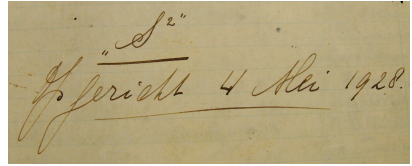 „S²"
Opgericht 4 Mei 1928.